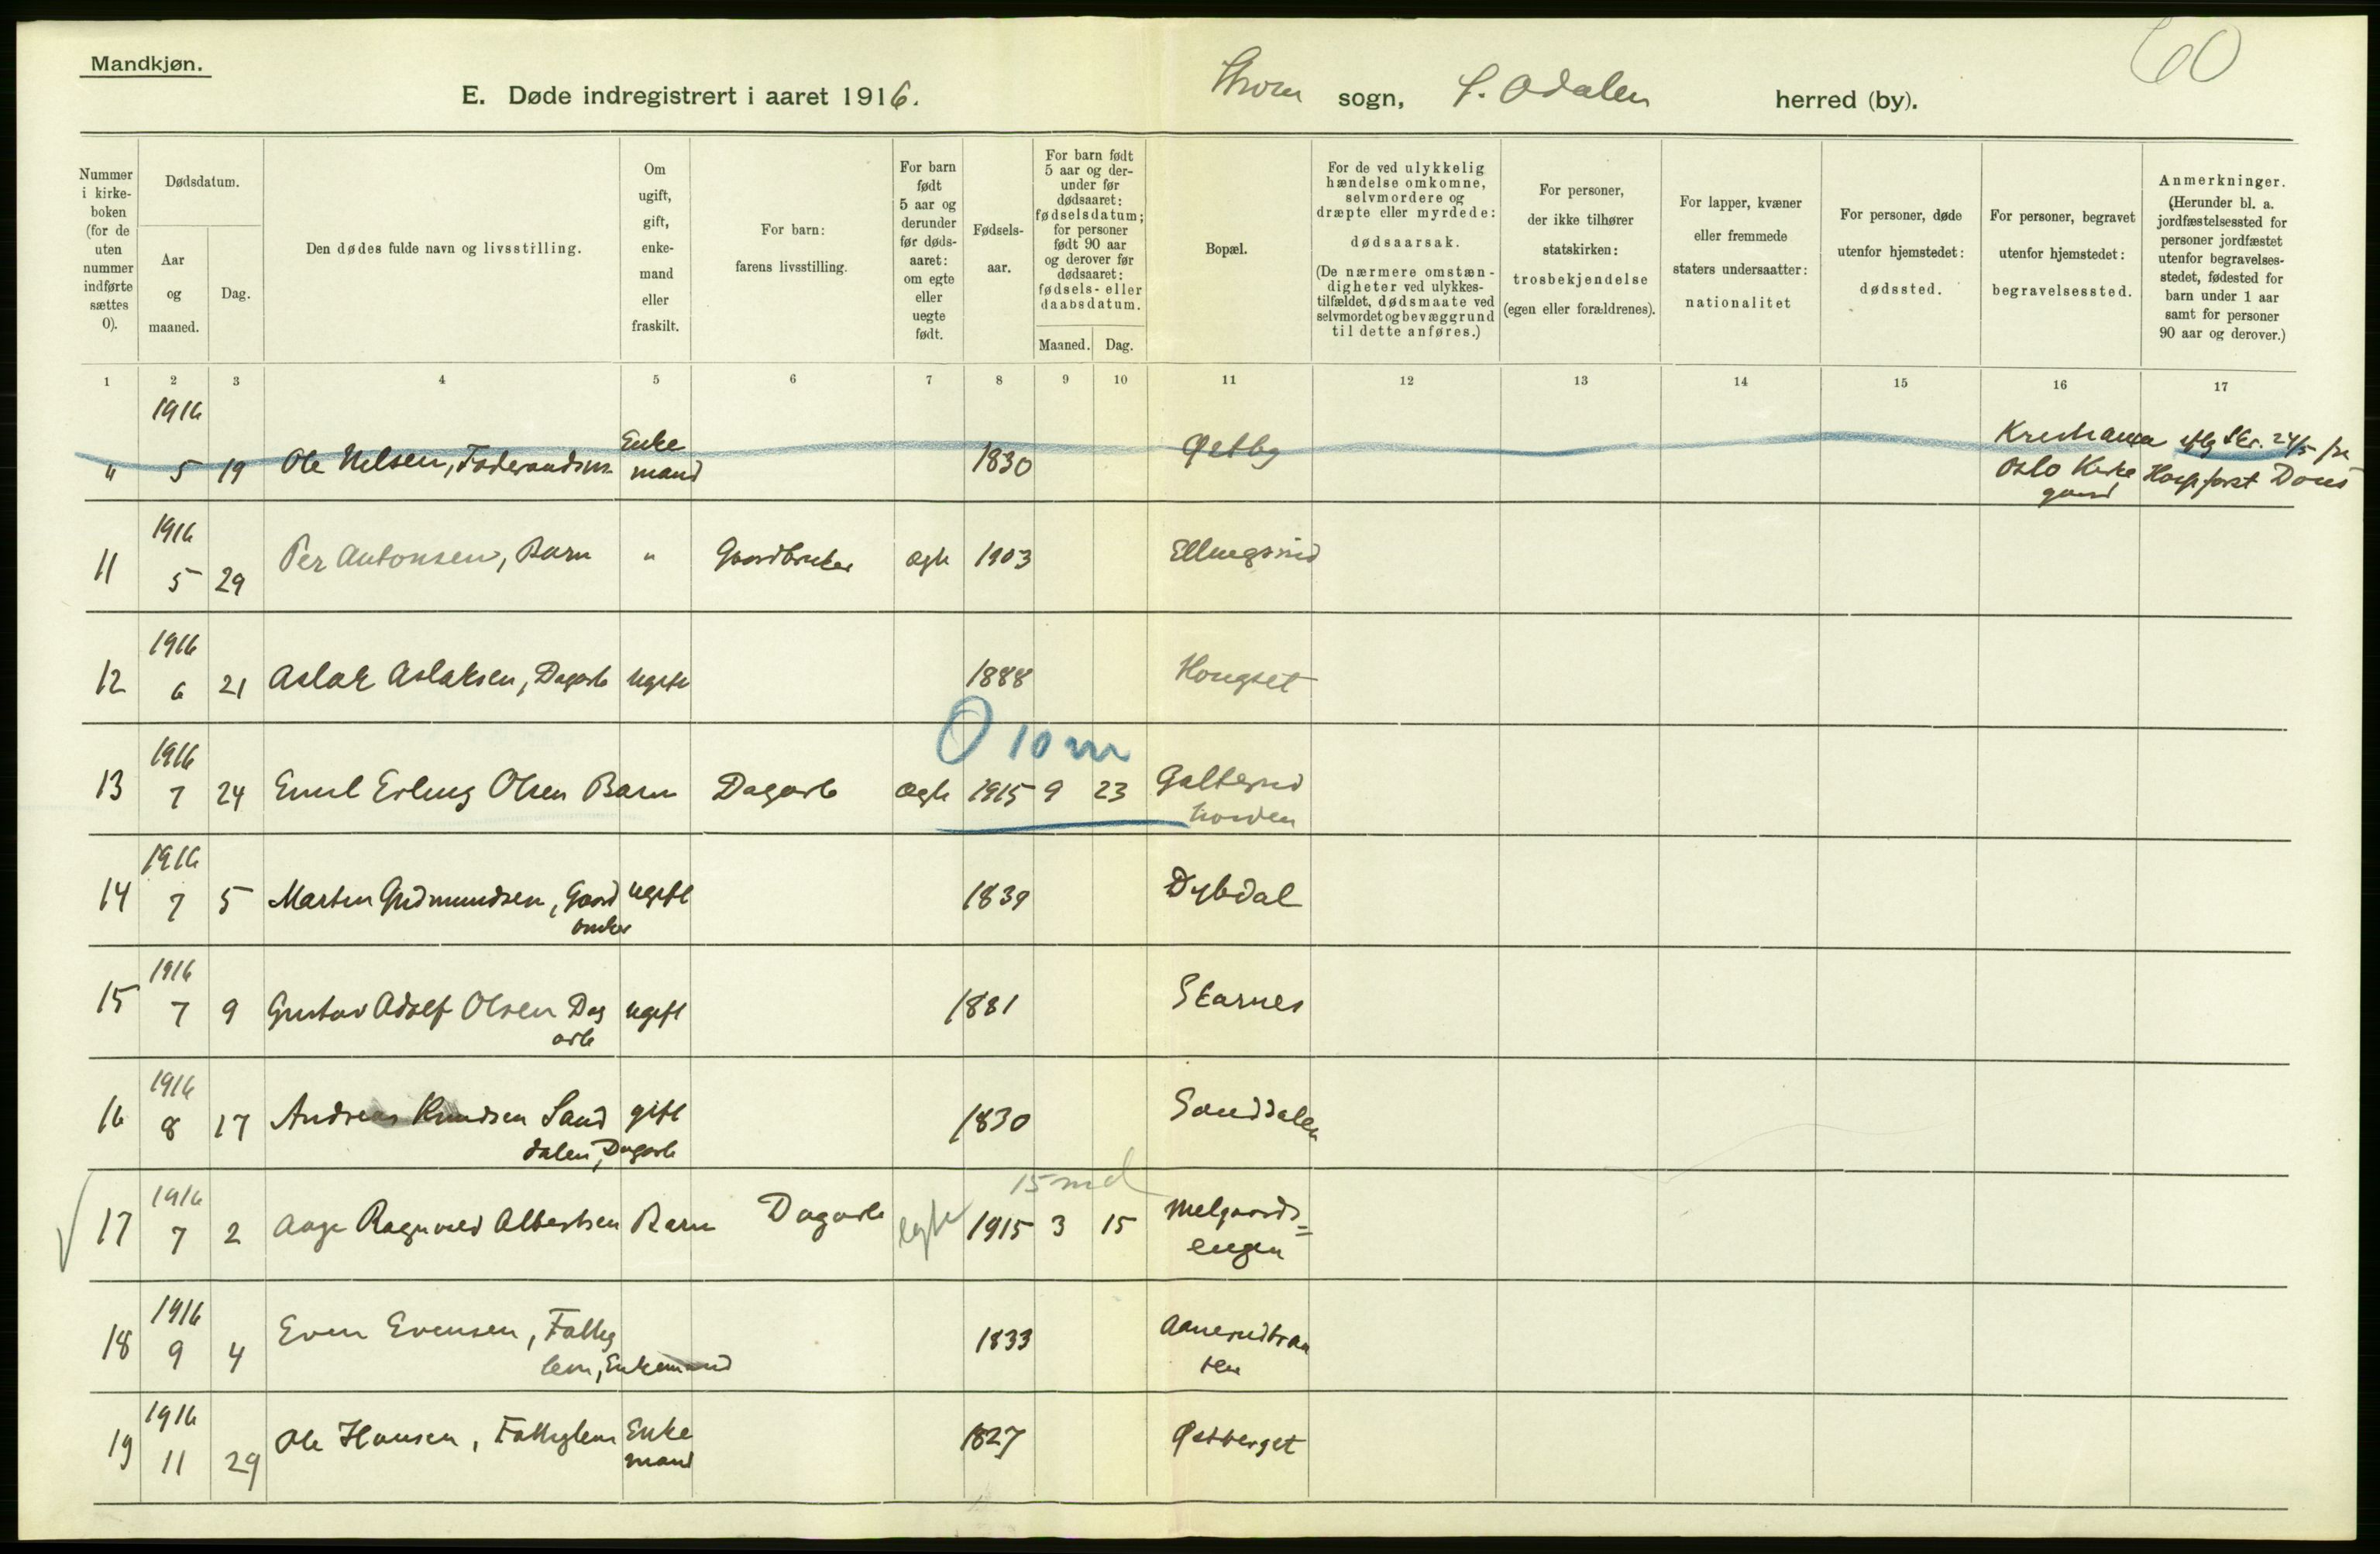 Mandkjøn.
60
E. Døde indregistrert i aaret 1916.
Strøm sogn, S. Odalen herred (by).
Nummer i kirkeboken (for de uten nummer indførte sættes 0).
Dødsdatum.
Aar og maaned.
Dag.
Den dødes fulde navn og livsstilling.
Om ugift, gift, enkemand eller fraskilt.
For barn: farens livsstilling.
For barn født 5 aar og derunder før dødsaaret: om egte eller uegte født.
Fødselsaar.
For barn født 5 aar og derunder før dødsaaret: fødselsdatum; for personer født 90 aar og derover før dødsaaret: fødsels- eller daabsdatum.
Maaned. Dag.
Bopæl.
For de ved ulykkelig hændelse omkomne, selvmordere og dræpte eller myrdede: dødsaarsak.
(De nærmere omstændigheter ved ulykkestilfældet, dødsmaate ved selvmordet og bevæggrund til dette anføres.)
For personer, der ikke tilhører statskirken: trosbekjendelse (egen eller forældrenes).
For lapper, kvæner eller fremmede staters undersaatter: nationalitet
For personer, døde utenfor hjemstedet: dødssted.
For personer, begravet utenfor hjemstedet: begravelsessted.
Anmerkninger. (Herunder bl. a. jordfæstelsessted for personer jordfæstet utenfor begravelsesstedet, fødested for barn under 1 aar samt for personer 90 aar og derover.)
1 2 3 4 5 6 7 8 9 10 11 12 13 14 15 16 17
1916
" 5 19 Ole Nelsen, Enke mand 1830 Østby Oslo Kirke gaard
1916
11 5 29 Per Antonsen, Barn " Gaardbruker ægte 1903 Ellingsrud
1916
12 6 21 Aslak Aslaksen, Dagarb ugift 1888 Hongset
0 10 m
1916
13 7 24 Emil Erling Olsen Barn Dagarb ægte 1915 9 23 Galterud
1916
14 7 5 Martin Gudmundsen, Gaard bruker ugift 1839 Dybdal
1916
15 7 9 Gustav Adolf Olsen Dag arb ugift 1881 Skarnes
1916
16 8 17 Andreas Knudsen Sand dalen, Dagarb gift 1830 Sanddalen
15 md
1916
17 7 2 Aage Ragnvald Albertsen Barn Dagarb egte 1915 3 15 Melgaards= engen
1916
18 9 4 Even Evensen, Fattig lem, Enkemand 1833
1916
19 11 29 Ole Hansen, Fattiglem Enke mand 1827 Østberget